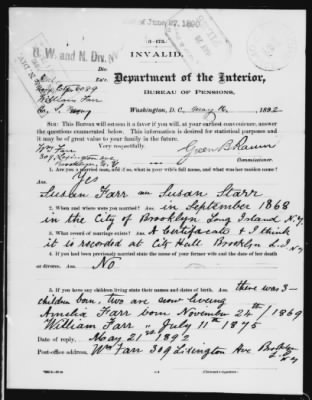 of June 27, 1890
(3-173.)
INVALID.
O. W. and N. Div.
Department of the Interior,
BUREAU OF PENSIONS,
William Farr
Washington, D. C., May 16, 1892
SIR: This Bureau will esteem it a favor if you will, at your earliest convenience, answer
the questions enumerated below. This information is desired for statistical purposes and
it may be of great value to your family in the future.
Very respectfully,
Wm Farr
309 Lexington ave
Brooklyn, N. Y.
Green B Raum
Commissioner.
1. Are you a married man, and if so, what is your wife's full name, and what was her maiden name?
Yes
Susan Farr Susan Starr
2. When and where were you married? in September 1868
in the City of Brooklyn Long Island N.Y.
3. What record of marriage exists? A Certificate & I think
it is recorded at City Hall Brooklyn L.I N.Y
4. If you had been previously married state the name of your former wife and the date of her death
or divorce. Ans. No
5. If you have any children living state their names and dates of birth. Ans. there was 3
children born, two are now liveing
Amelia Farr born November 24th / 1869
William Farr " July 11th 1875
Date of reply, May 21st 1892
Post-office address, Wm Farr 309 Lixington Ave Brooklyn
L.I. N.Y